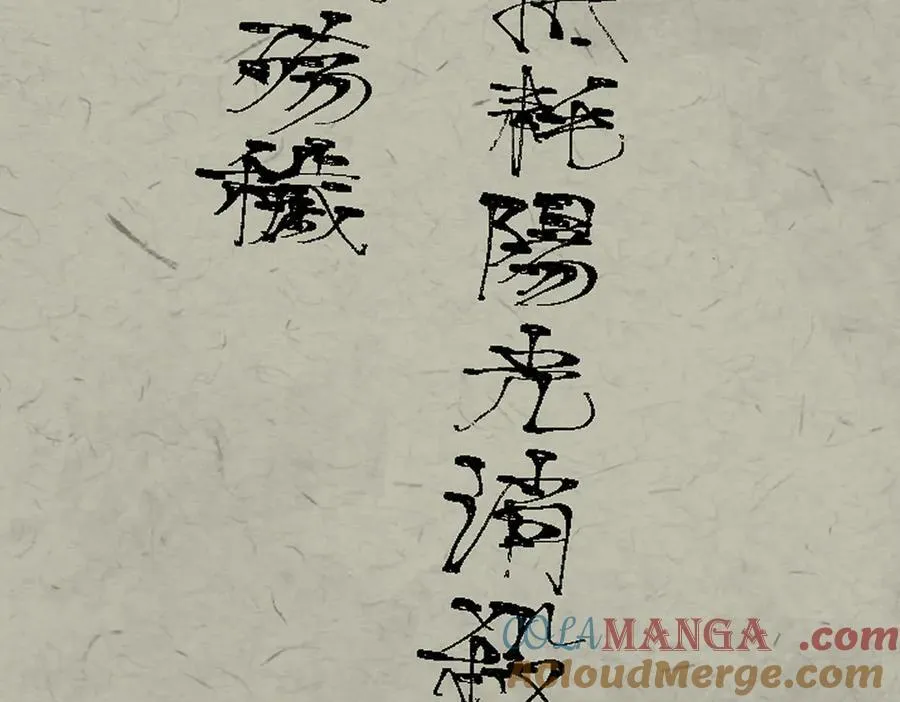 耗陽光消殺
穢
COLAMANGA.com
AcloudMerge.com